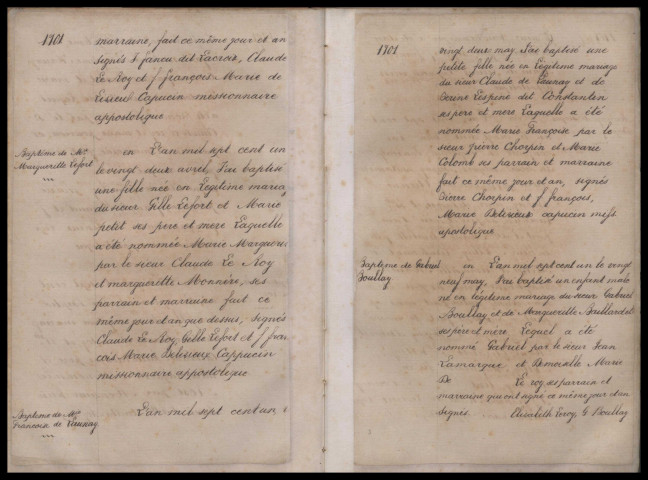 1701
marraine, fait ce même jour et an
signés
dit Lacroix, Claude
Le Roy et f françois Marie de
Lisieux Capucin missionnaire
appostolique
Baptême de Mie
Marguerite Lefort
en Lan mil sept cent un
le vingt deux avril, J'ai baptisé
une fille née en Légitime maria
du sieur Gille Lefort et Marie
petit ses père et mère Laquelle
a été nommée Marie Marguerite
par le sieur Claude Le Roy
et marguerite Monnéré, ses
parrain et marraine fait ce
même jour et an que dessus, signés
Claude Le Roy, Gille Lefort et f fran
cois Marie Delisieux Cappucin
missionnaire appostolique
Baptême de Mie
Francoise de Launay
Lan mil sept cent un
1701
vingt deux may J'ai baptisé une
petite fille née en Légitime mariage
du sieur Claude de Launay et de
Lespine dit Constantin
ses père et mère Laquelle a été
nommée Marie Françoise par le
sieur pierre Chorpin et Marie
Colomb ses parrain et marraine
fait ce même jour et an, signés
Pierre Chorpin et f françois,
Marie Delisieux capucin miss
apostolique
Baptême de Gabriel
Boullay
en Lan mil sept cent un le vingt
neuf may, J'ai baptisé un enfant male
né en légitime mariage du sieur Gabriel
Boullay et de Marguerite
ses père et mère Lequel a été
nommé Gabriel par le sieur Jean
Lamarque et Demoiselle Marie
De Le roy ses parrain et
marraine qui ont signé ce même jour et an
signés Elisabeth Leroy, G Boullay